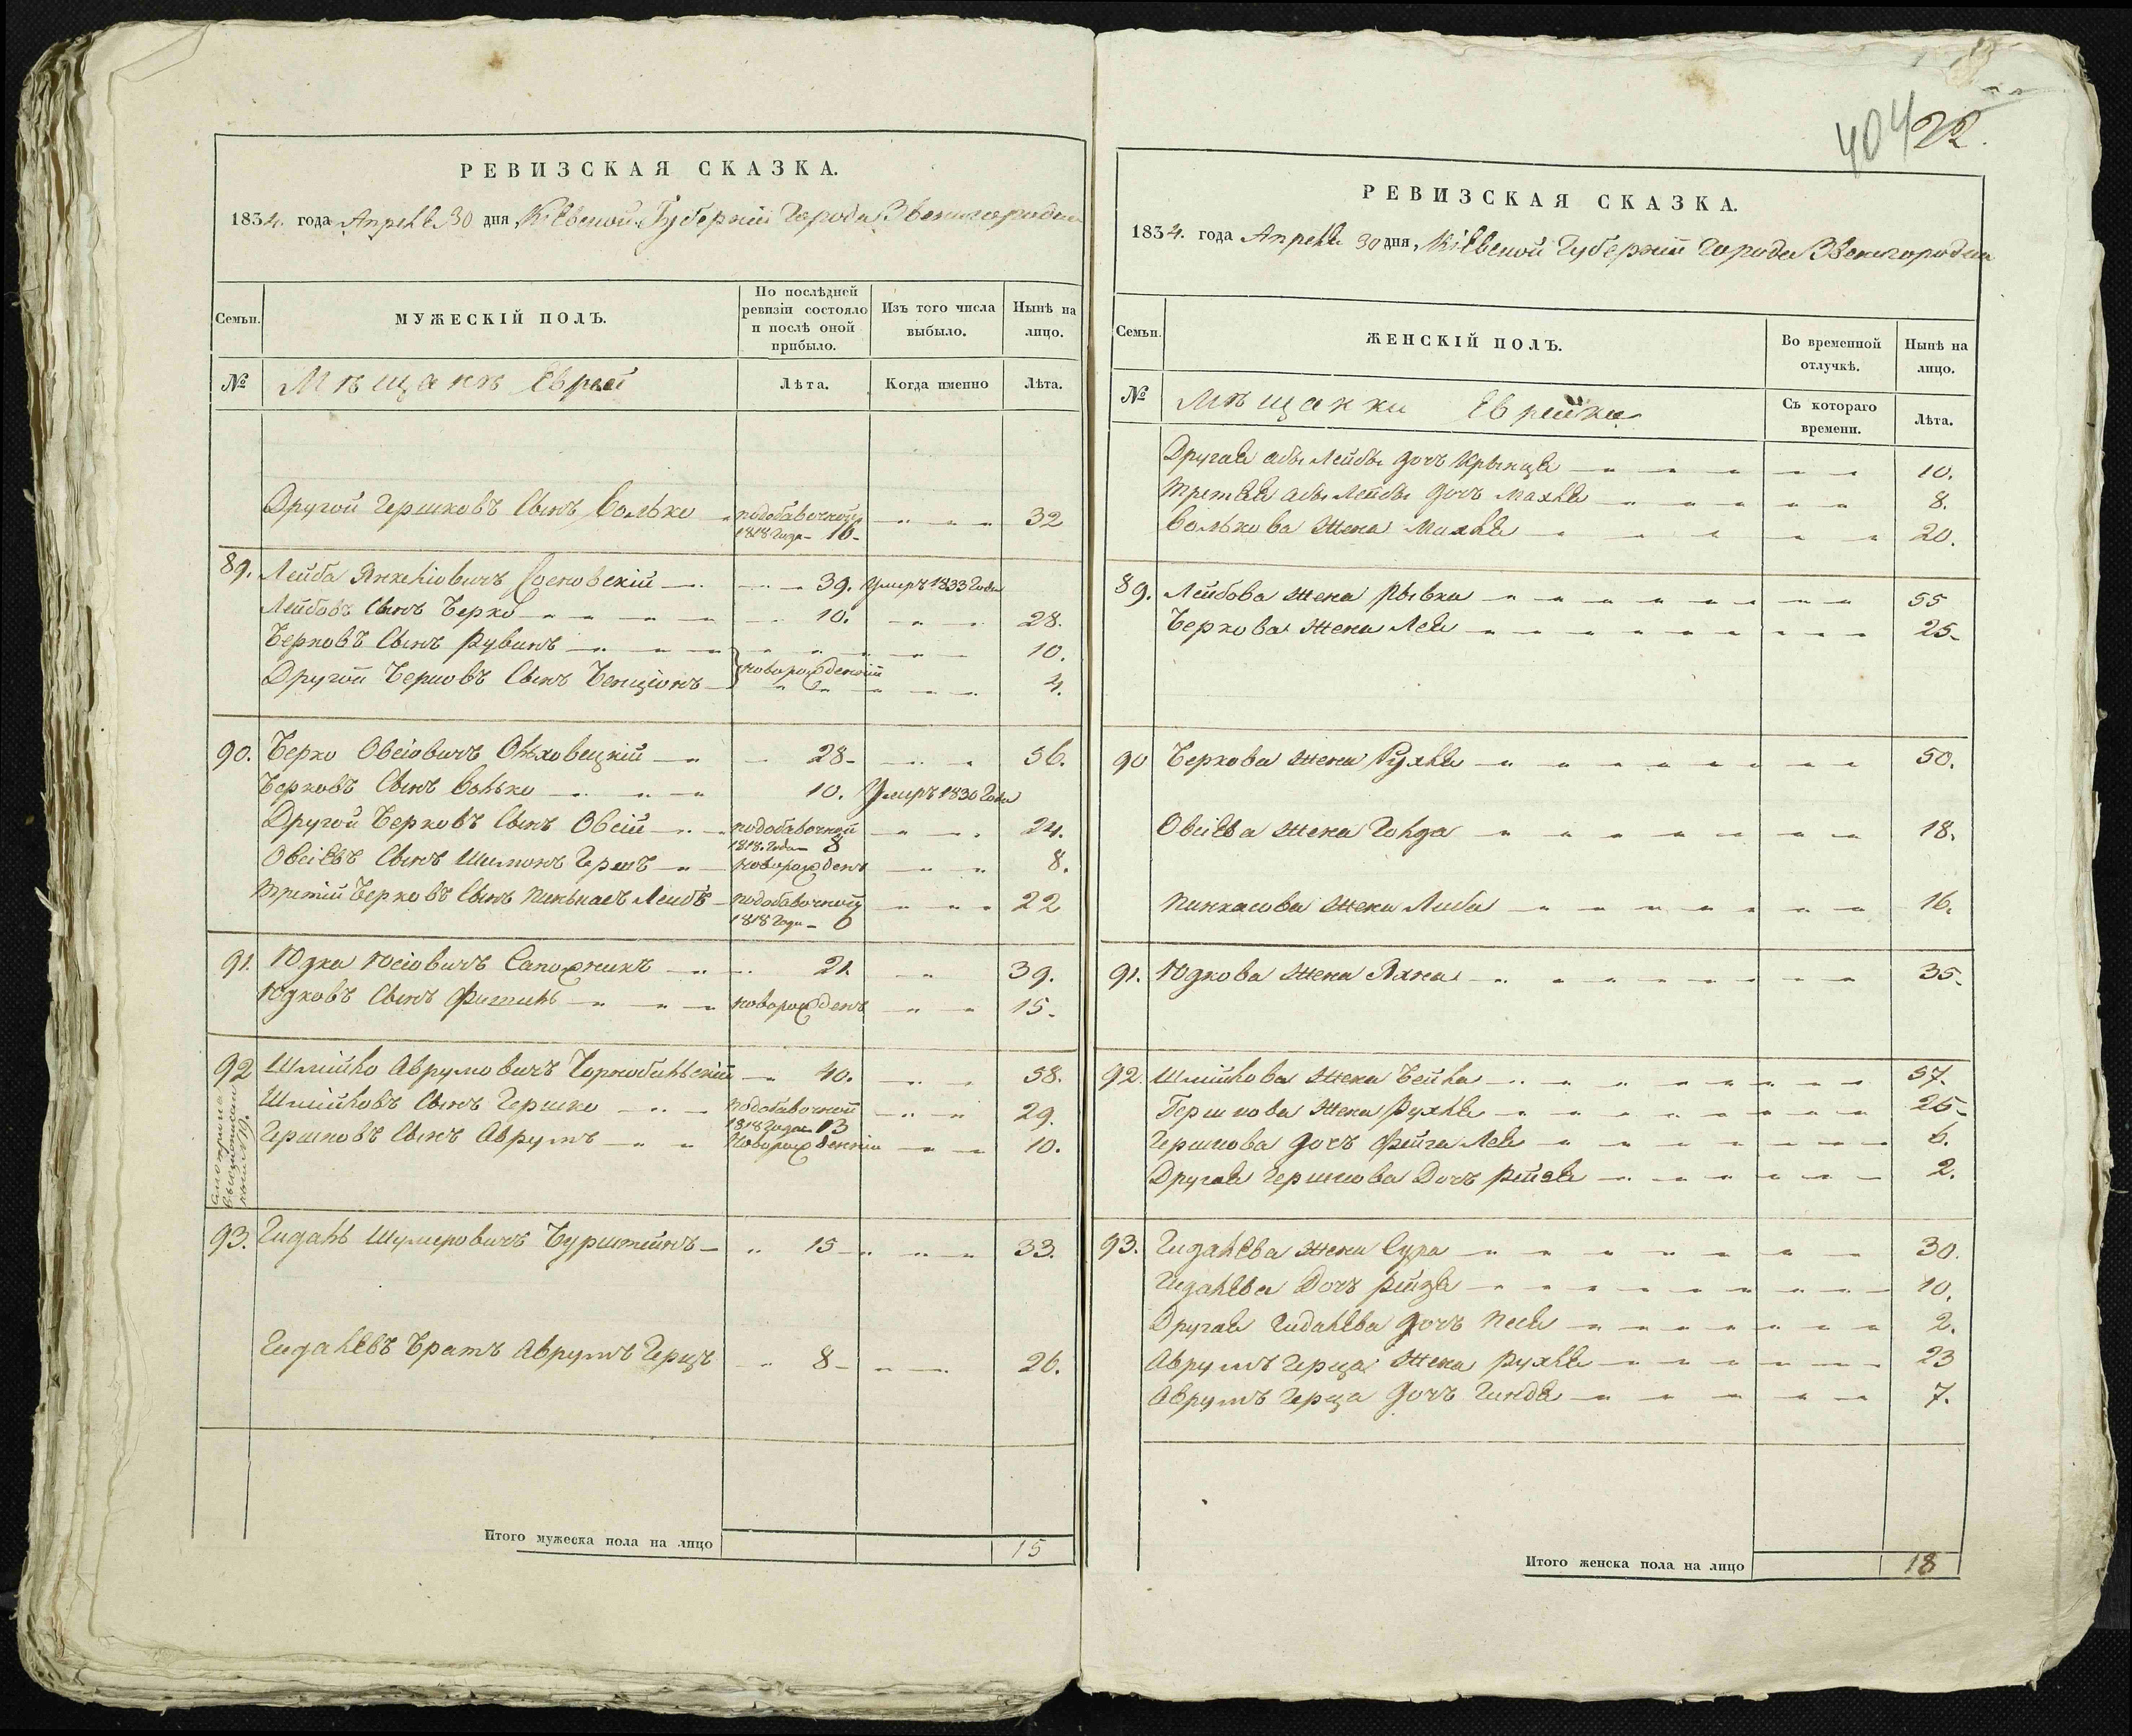 РЕВИЗСКАЯ СКАЗКА.
1834. года Апреля 30 дня, Кіевской Губерніи Города Звенигородки
Семьи.
МУЖЕСКІЙ ПОЛЪ.
По послѣдней ревизіи состояло и послѣ оной прибыло.
Изъ того числа выбыло.
Нынѣ на лицо.
№
Мѣщанъ Еврей
Лѣта.
Когда именно
Лѣта.
Другой Гершковъ Сынъ Волько подобавочной 1818 Года - 16 - 32
89. Лейба Янкеліовичъ Сосновскій 39. Умеръ 1833 Года
Лейбовъ Сынъ Берко 10. 28.
Берковъ Сынъ Рувинъ 10.
новорожденніи
Другой Берковъ Сынъ Бенціонъ 4.
90. Берко Овсіовичъ Ольховецкій 28 - 56.
Берковъ Сынъ Волько 10. Умеръ 1830 Года
Другой Берковъ Сынъ Овсій подобавочной 1818. Года - 8 24.
Овсіевъ Сынъ Шимонъ Гершъ новорожденъ 8.
Третій Берковъ Сынъ Пинькасъ Лейбъ подобавочной 1818 Года - 6 22
91. Юдка Юсіовичъ Сапожникъ 21. 39.
Юдковъ Сынъ Фишель новорожденъ 15.
92 Шмійло Аврумовичъ Чорнобильскій 40. 58.
Шмійловъ Сынъ Гершко подобавочной 1818 Года 13 29.
Гершковъ Сынъ Аврумъ Новорожденніи 10.
93. Гидаль Шумеровичъ Бурштейнъ 15 33.
Гидалевъ Братъ Аврумъ Герцъ 8 - 26.
Итого мужеска пола на лицо 15
404 22.
РЕВИЗСКАЯ СКАЗКА.
1834. года Апреля 30 дня, Кіевской Губерніи Города Звенигородки
Семьи.
ЖЕНСКІЙ ПОЛЪ.
Во временной отлучкѣ.
Нынѣ на лицо.
№
Мѣщанки Еврейки
Съ котораго времени.
Лѣта.
Другая абы Лейбы дочъ Крынця 10.
Третяя абы Лейбы дочъ Махля 8.
Волькова Жена Махля 20.
89. Лейбова Жена Рывка 55
Беркова Жена Лея 25 -
90 Беркова Жена Рухля 50.
Овсіева Жена Голда 18.
Пинкасова Жена Либа 16.
91. Юдкова Жена Хана 35 -
92. Шмійлова Жена Бейла 57.
Гершкова Жена Рухля 25 -
Гершкова дочъ Фейга Лея 6.
Другая Гершкова Дочъ Рейзя 2.
93. Гидалева Жена Сура 30.
Гидалева Дочъ Рейзя 10.
Другая Гидалева дочъ Песя 2.
Аврумъ Герца Жена Рухля 23
Аврумъ Герца дочъ Гиндя 7.
Итого женска пола на лицо 18